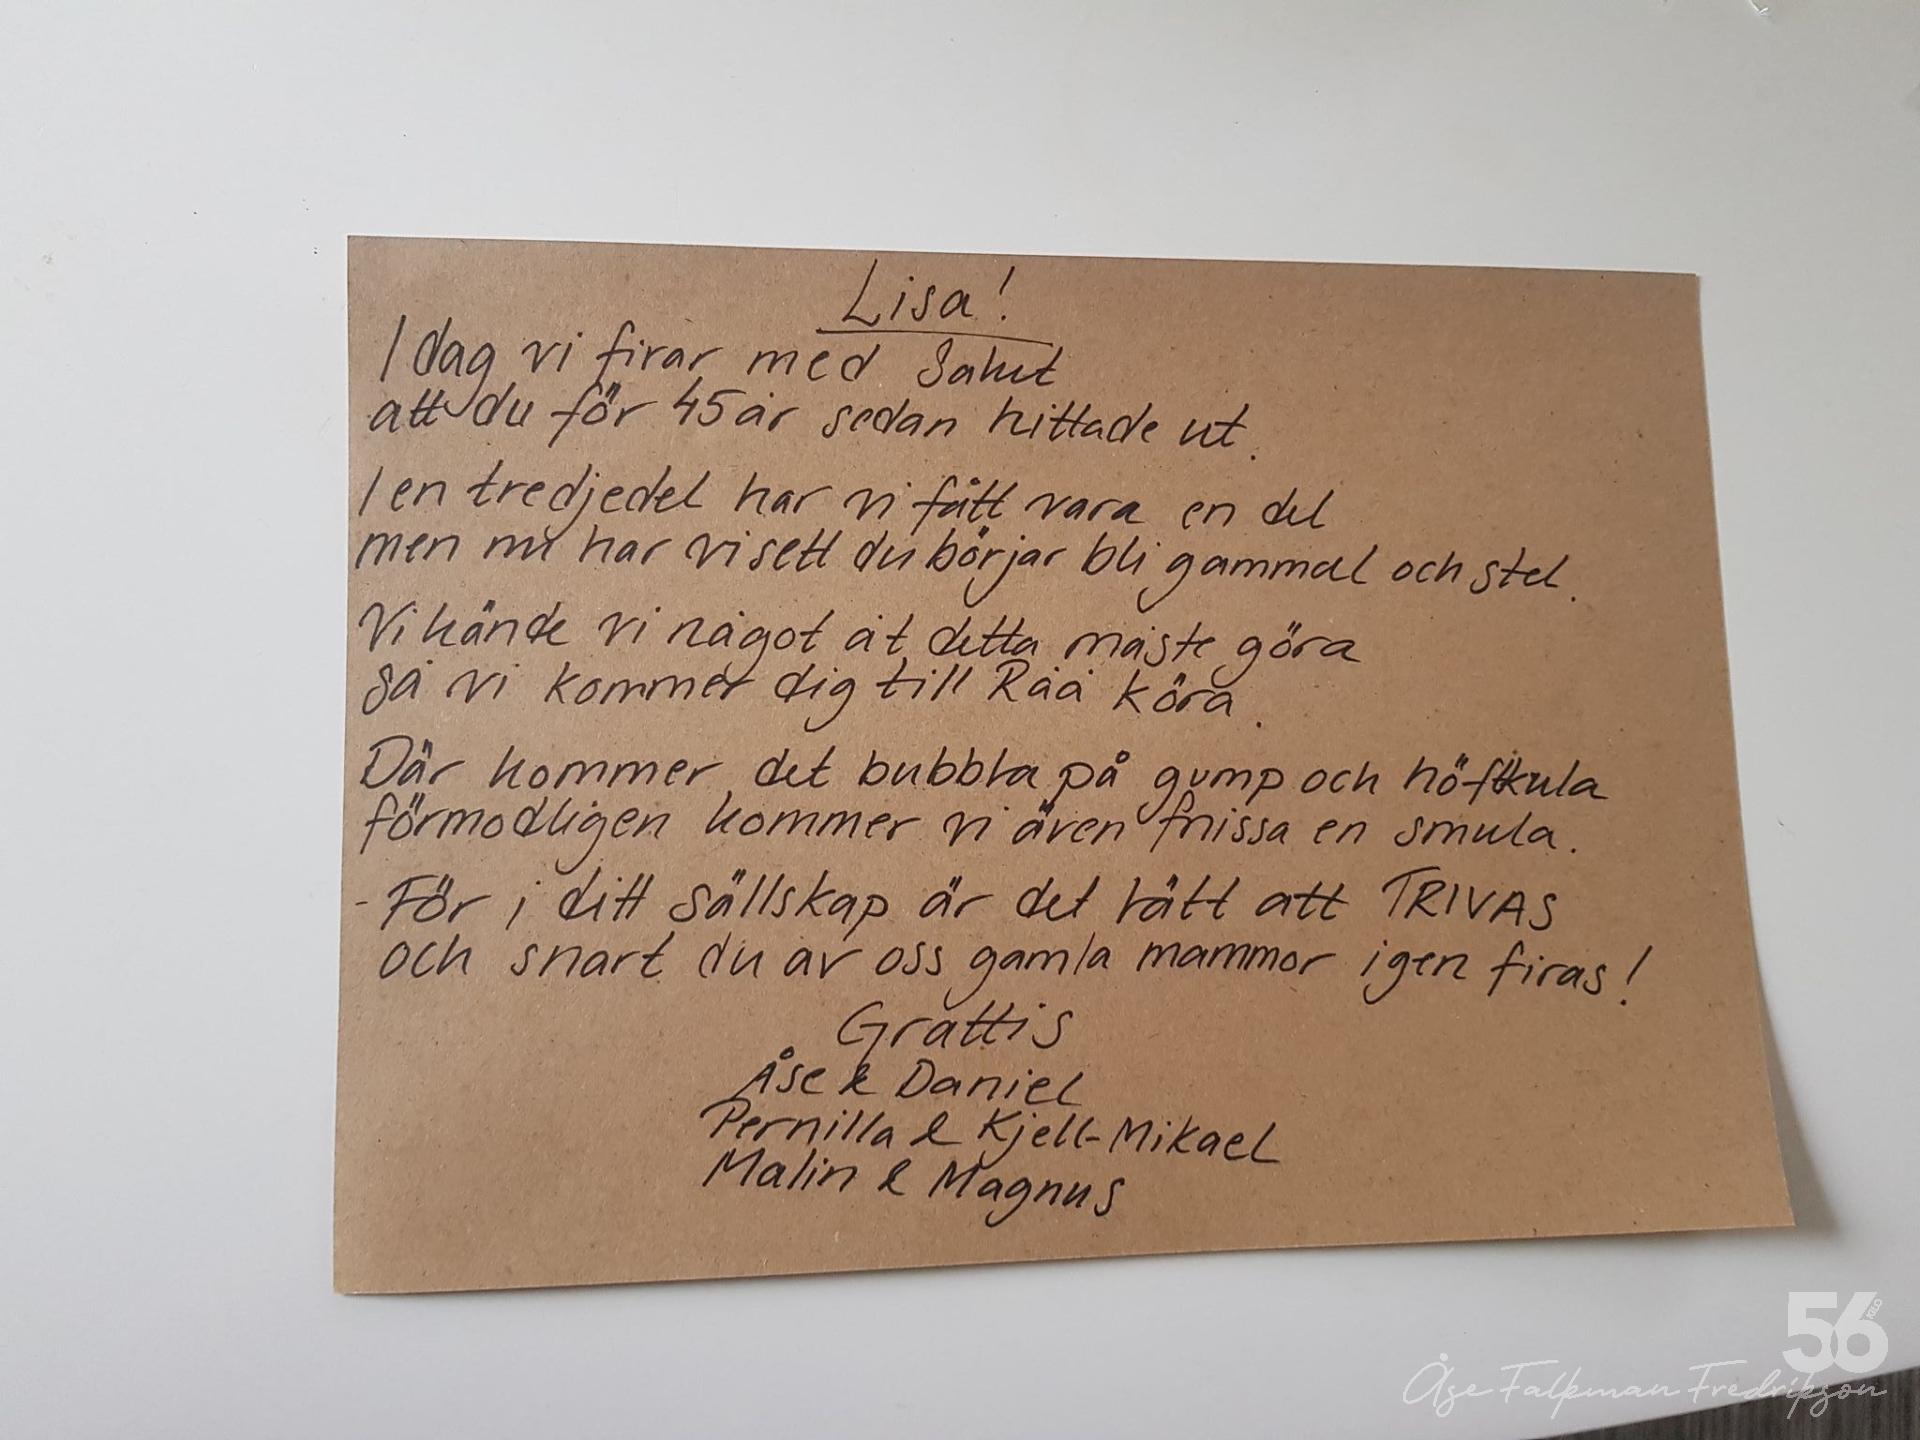 Lisa!
I dag vi firar med Salut
att du för 45 år sedan hittade ut.
I en tredjedel har vi fått vara en del
men nu har vi sett du börjar bli gammal och stel.
Vi kände vi något åt detta måste göra
så vi kommer dig till Råå köra.
Där kommer det bubbla på gump och höftkula
förmodligen kommer vi även fnissa en smula.
- För i ditt sällskap är det lätt att TRIVAS
och snart du av oss gamla mammor igen firas!
Grattis
Åse & Daniel
Pernilla & Kjell-Mikael
Malin & Magnus
56 KILO
Åse Falkman Fredrikson